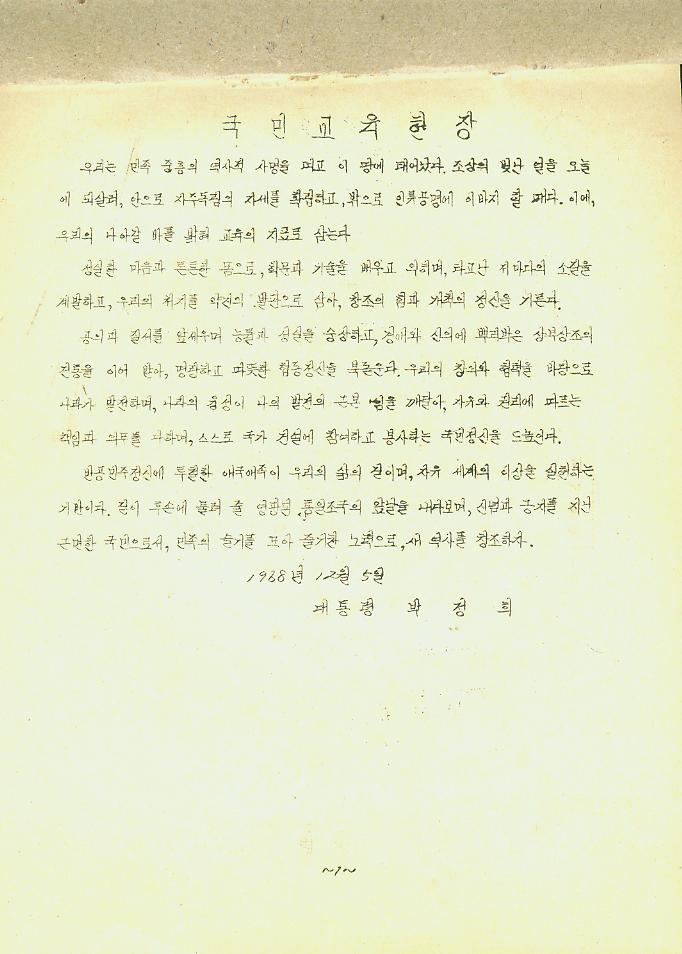 국민교육헌장
우리는 민족 중흥의 역사적 사명을 띠고 이 땅에 태어났다. 조상의 빛난 얼을 오늘
에 되살려, 안으로 자주독립의 자세를 확립하고, 밖으로 인류공영에 이바지 할 때다. 이에,
우리의 나아갈 바를 밝혀 교육의 지표로 삼는다
성실한 마음과 튼튼한 몸으로, 학문과 기술을 배우고 익히며, 타고난 저마다의 소질을
계발하고, 우리의 처지를 약진의 발판으로 삼아, 창조의 힘과 개척의 정신을 기른다.
공익과 질서를 앞세우며 능률과 실질을 숭상하고, 경애와 신의에 뿌리박은 상부상조의
전통을 이어 받아, 명랑하고 따뜻한 협동정신을 북돋운다. 우리의 창의와 협력을 바탕으로
나라가 발전하며, 나라의 융성이 나의 발전의 근본 임을 깨달아, 자유와 권리에 따르는
책임과 의무를 다하며, 스스로 국가 건설에 참여하고 봉사하는 국민정신을 드높인다.
반공민주정신에 투철한 애국애족이 우리의 삶의 길이며, 자유 세계의 이상을 실현하는
기반이다. 길이 후손에 물려 줄 영광된 통일조국의 앞날을 내다보며, 신념과 긍지를 지닌
근면한 국민으로서, 민족의 슬기를 모아 줄기찬 노력으로, 새 역사를 창조하자.
1968年 12월 5일
대통령 박 정 희
~1~